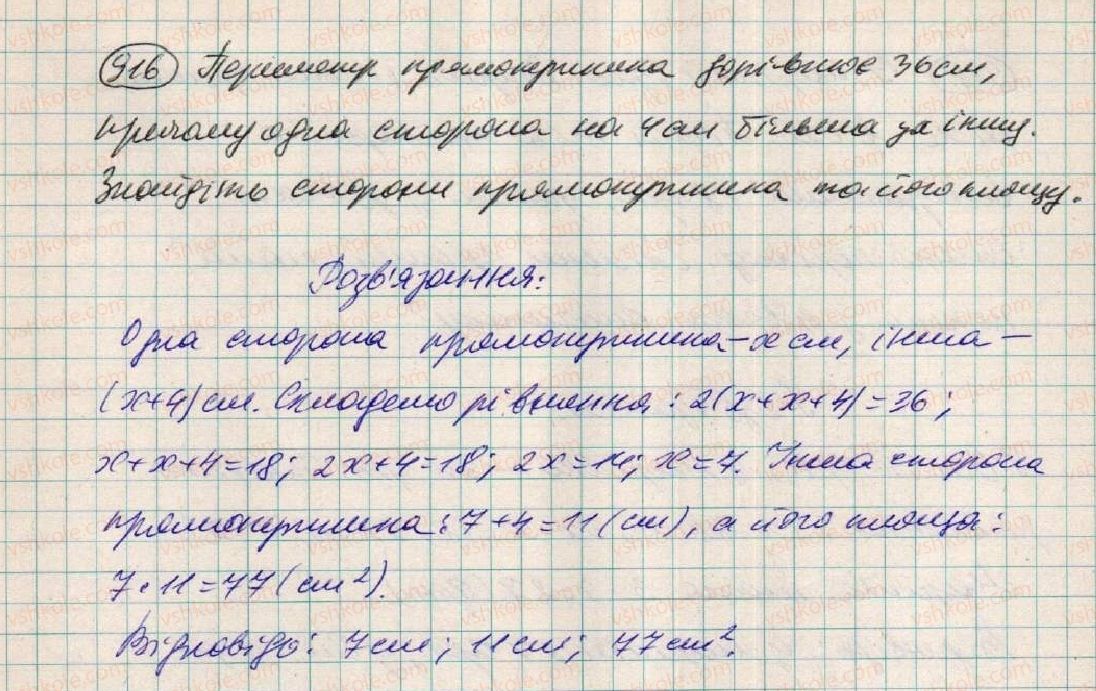 916 Периметр прямокутника дорівнює 36 см,
причому одна сторона на 4 см більша за іншу.
Знайдіть сторони прямокутника та його площу.
Розв'язання:
Одна сторона прямокутника – x см, інша –
(x+4) см. Складемо рівняння: 2(x+x+4)=36;
x+x+4=18; 2x+4=18; 2x=14; x=7. Інша сторона
прямокутника: 7+4=11 (см), а його площа:
7·11=77 (см²).
Відповідь: 7 см; 11 см; 77 см².